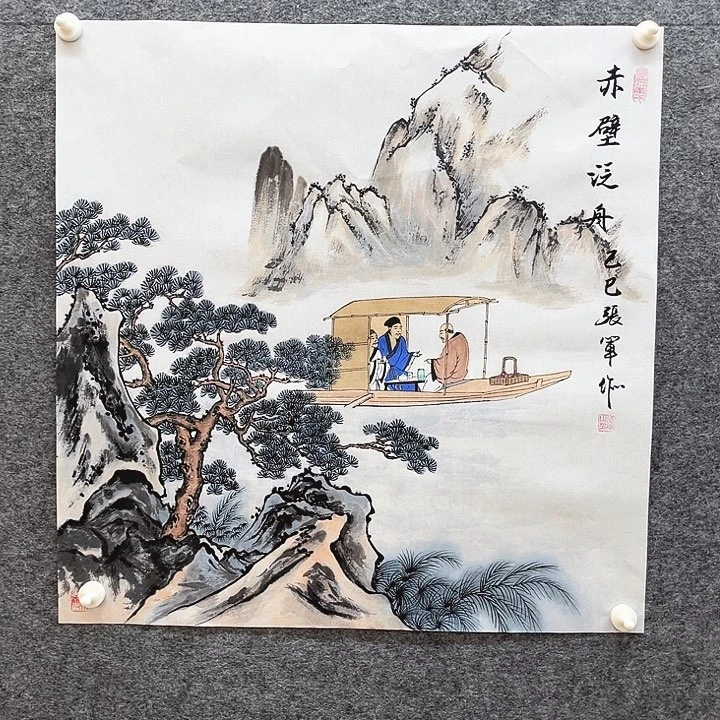 赤壁泛舟己巳張軍作